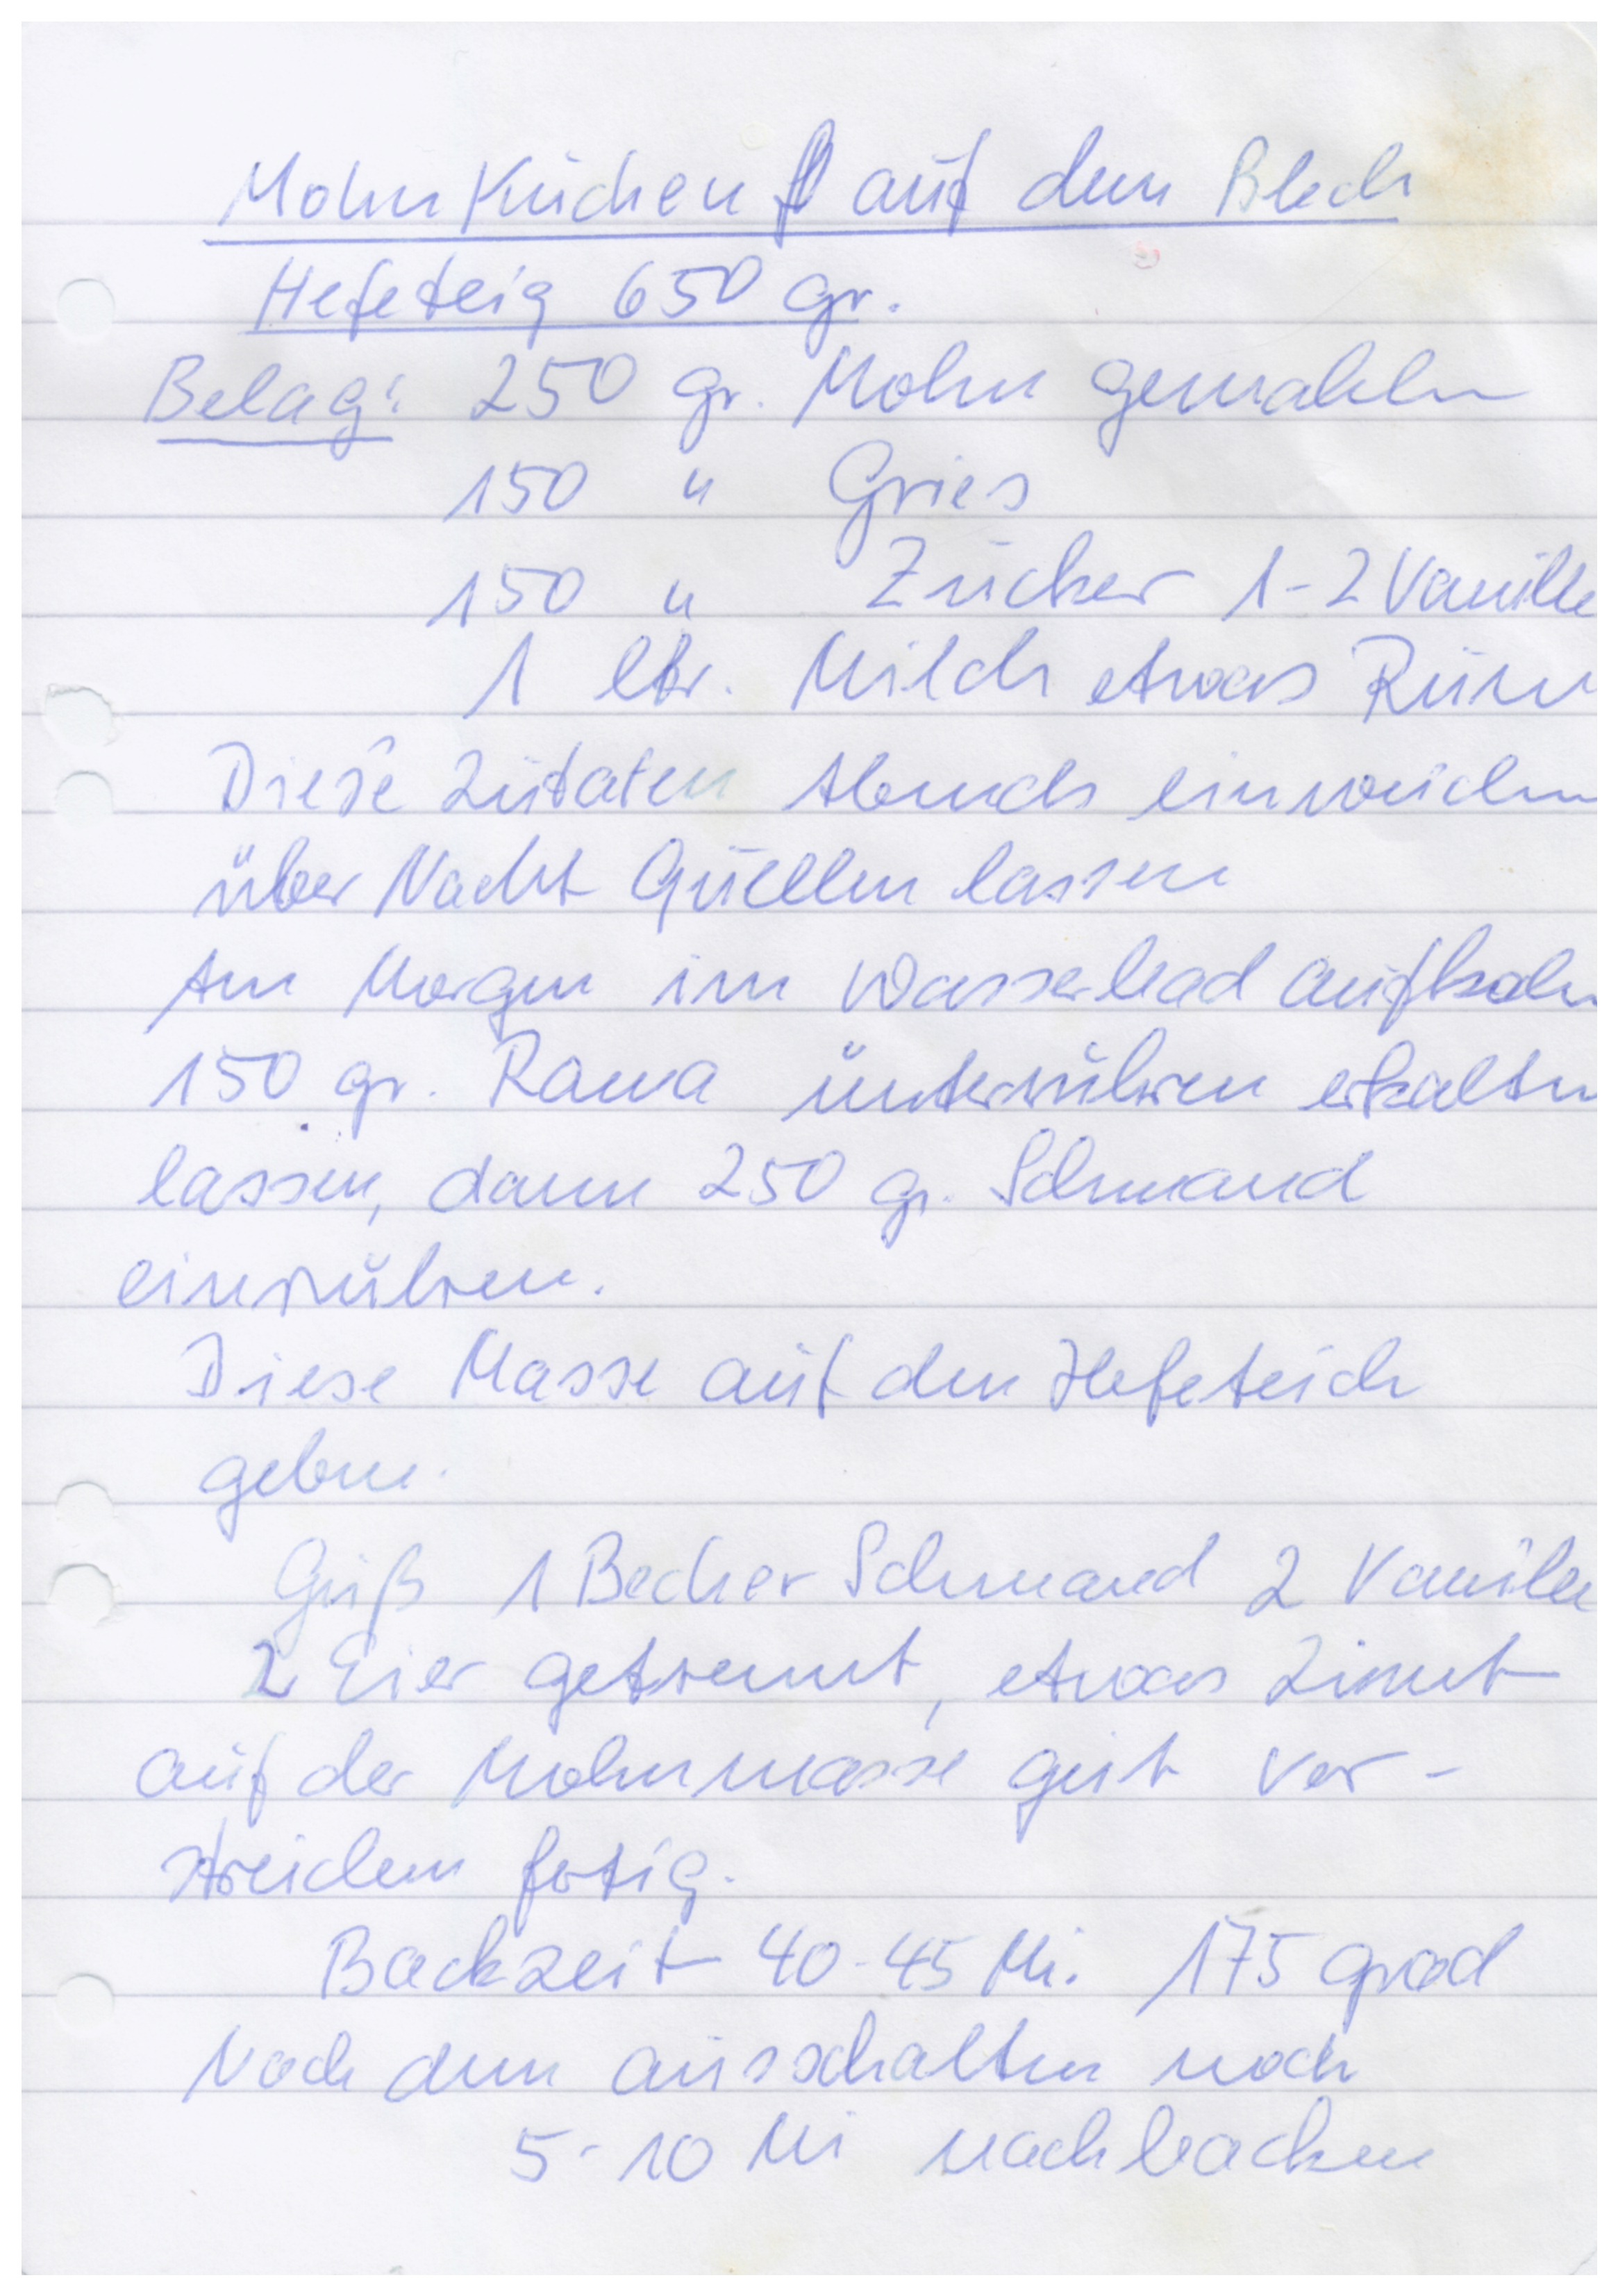 Mohn Kuchen auf dem Blech
Hefeteig 650 gr.
Belag: 250 gr. Mohn gemahlen
150 " Gries
150 " Zucker 1-2 Vanille
1 ltr. Milch etwas Rum
Diese Zutaten Abends einweichen
über Nacht Quellen lassen
Am Morgen im Wasserbad aufkochen
150 gr. Rama unterrühren erkalten
lassen, dann 250 gr. Schmand
einrühren.
Diese Masse auf den Hefeteich
geben.
Guß 1 Becher Schmand 2 Vanille
2 Eier getrennt, etwas Zimt
auf der Mohnmasse gut ver-
streichen fertig.
Backzeit 40-45 Mi. 175 grad
Nach dem ausschalten noch
5-10 Mi nachbacken